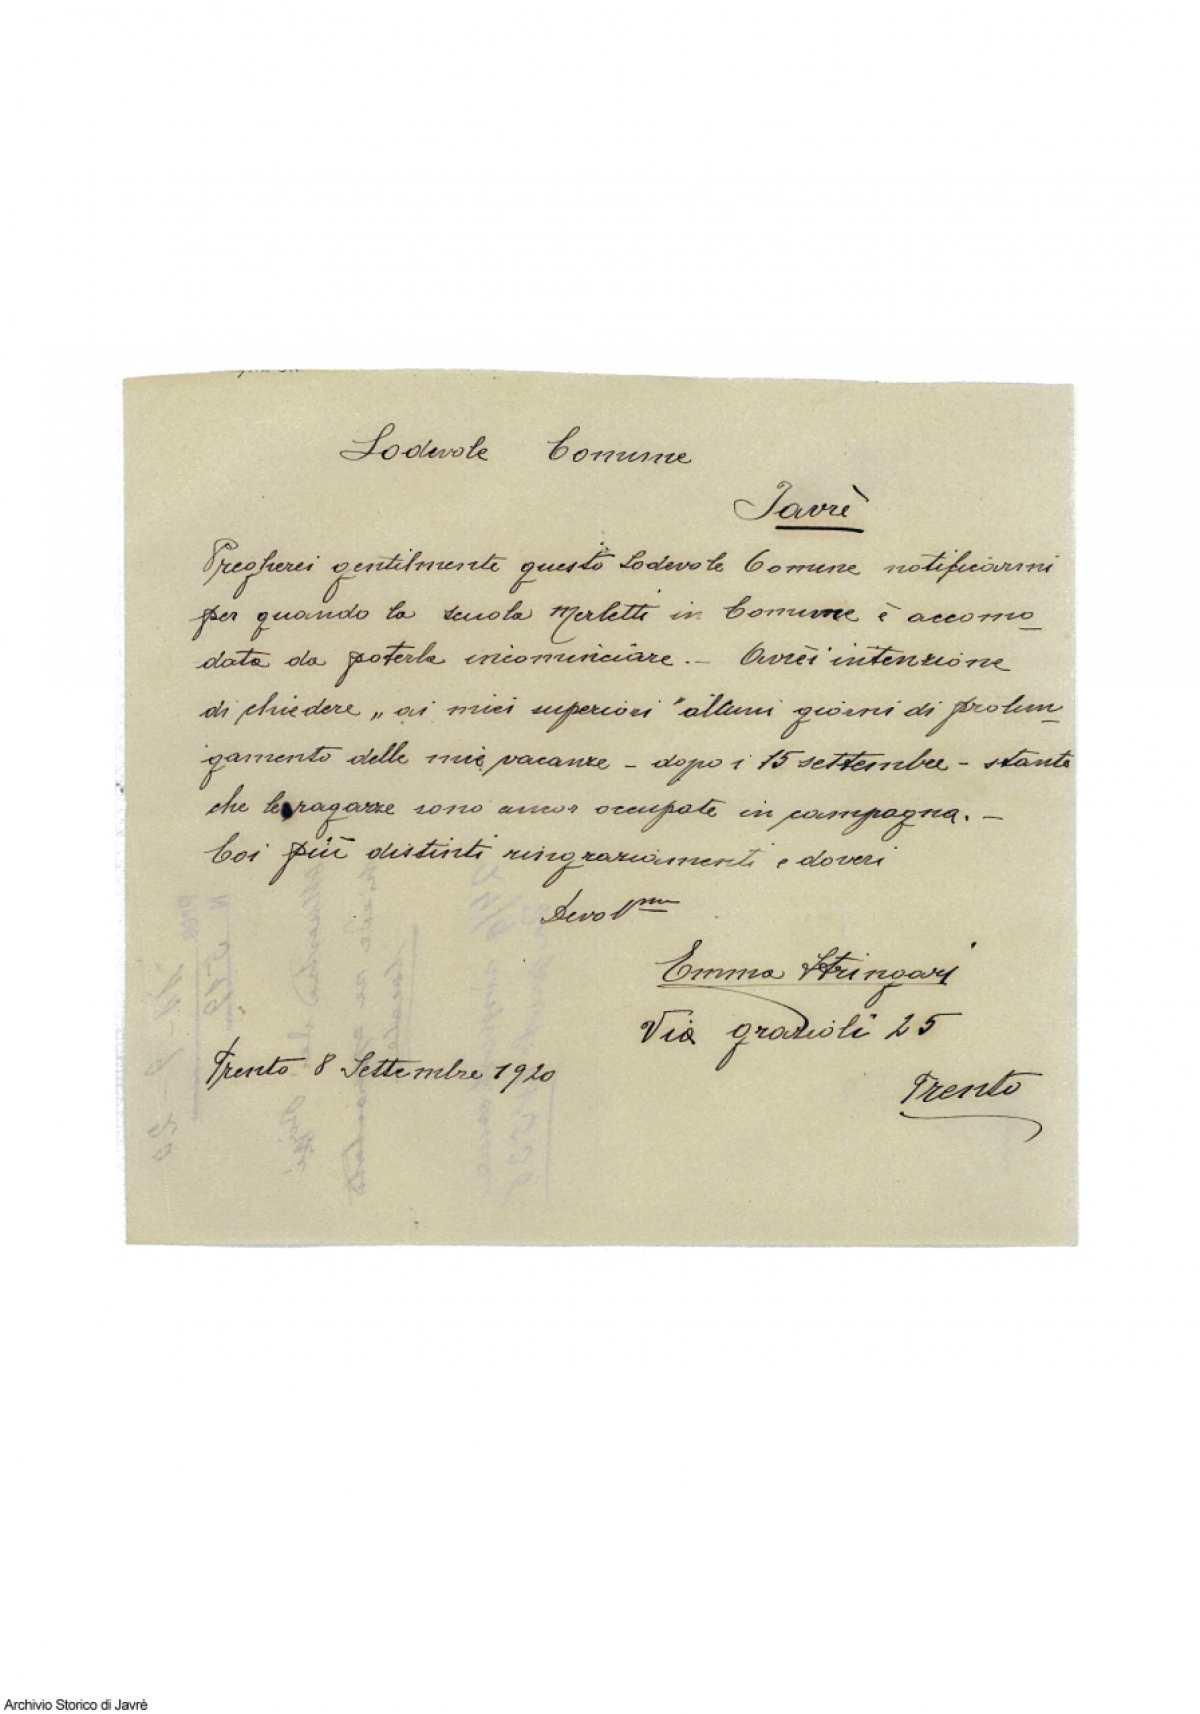 Lodevole Comune
Javrè
Pregherei gentilmente questo Lodevole Comune notificarmi
per quando la scuola Merletti in Comune è accomo_
data da poterla incominciare. _ Avrei intenzione
di chiedere „ai miei superiori" alcuni giorni di prolun_
gamento delle mie vacanze _ dopo i 15 settembre _ stante
che le ragazze sono ancor occupate in campagna. _
Coi più distinti ringraziamenti e doveri
Devolma
Emma Stringari
Via Grazioli 25
Trento 8 Settembre 1920
Trento
Archivio Storico di Javrè